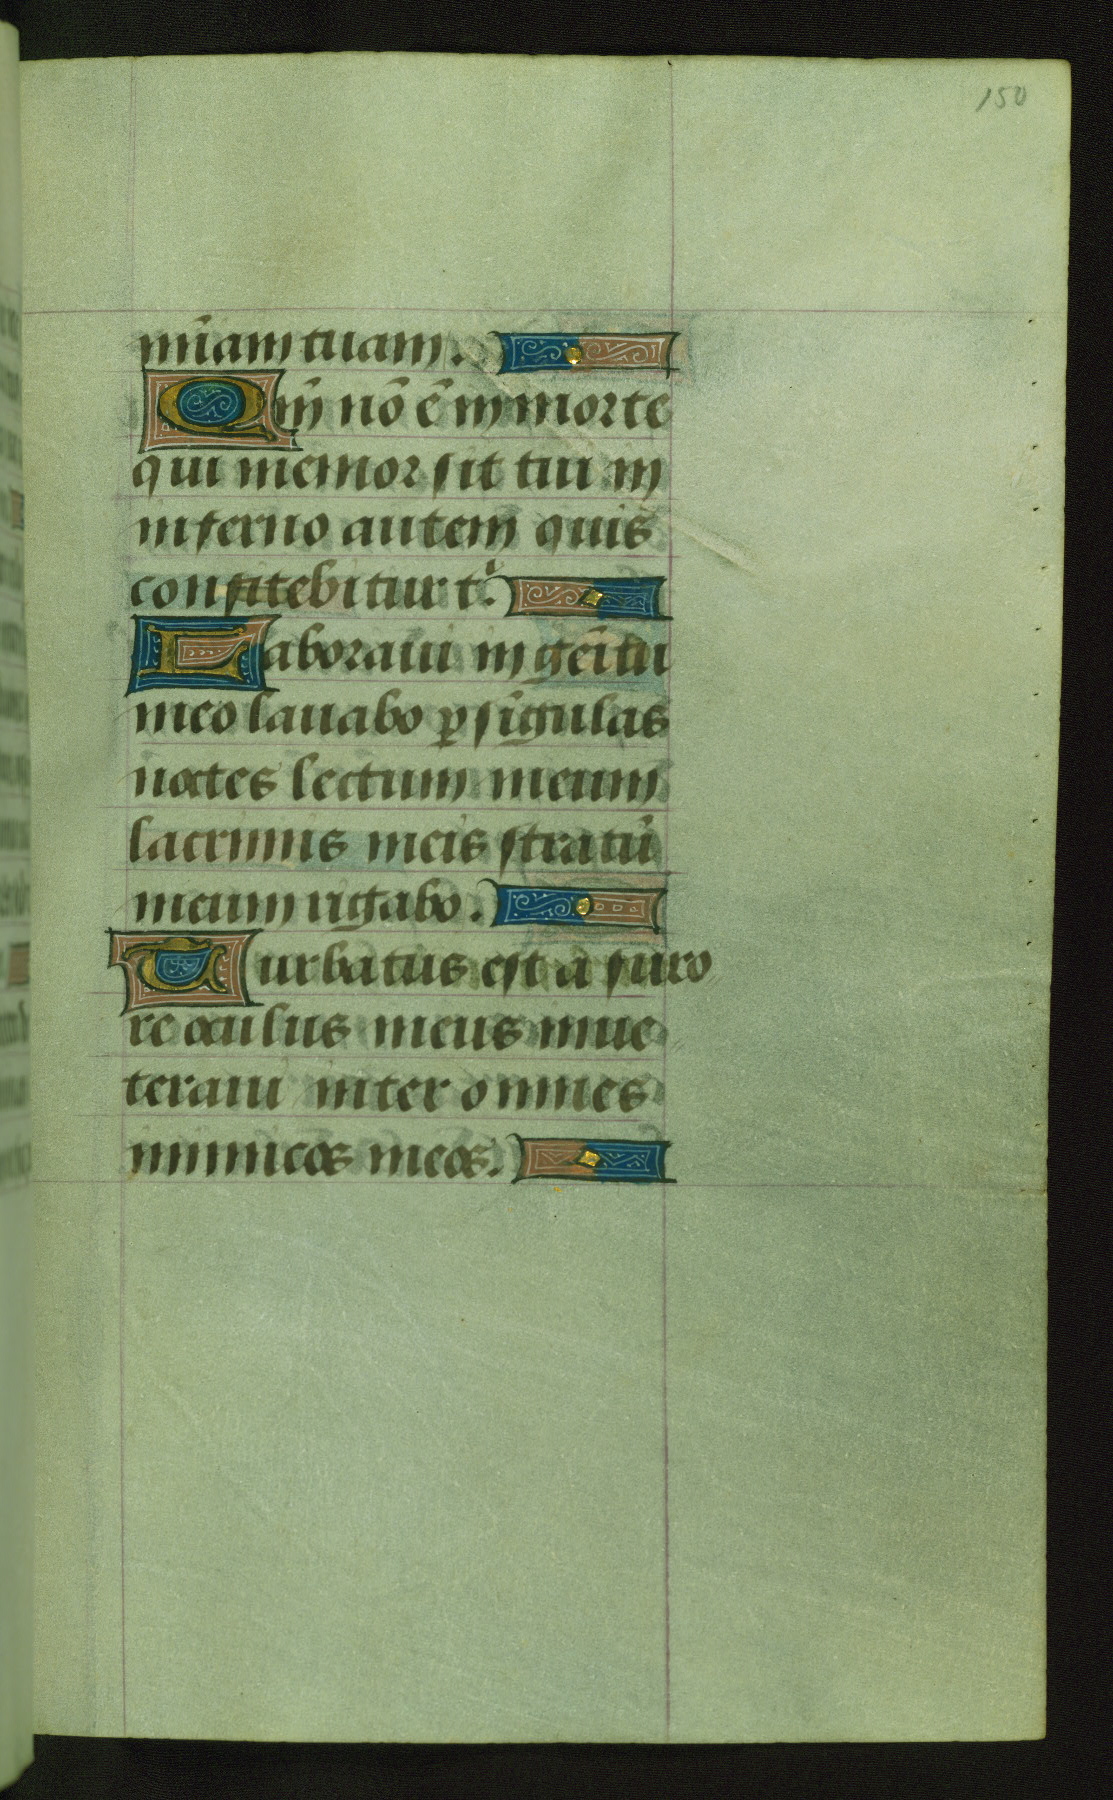 150
mīam tuam.
Qm̄ nō ē in morte
qui memor sit tui in
inferno autem quis
confitebitur tⁱ.
Laboraui in gēitu
meo lauabo ꝑ sīgulas
noctes lectum meum
lacrimis meis stratū
meum rigabo.
Turbatus est a furo
re oculus meus inue
teraui inter omnes
inimicos meos.